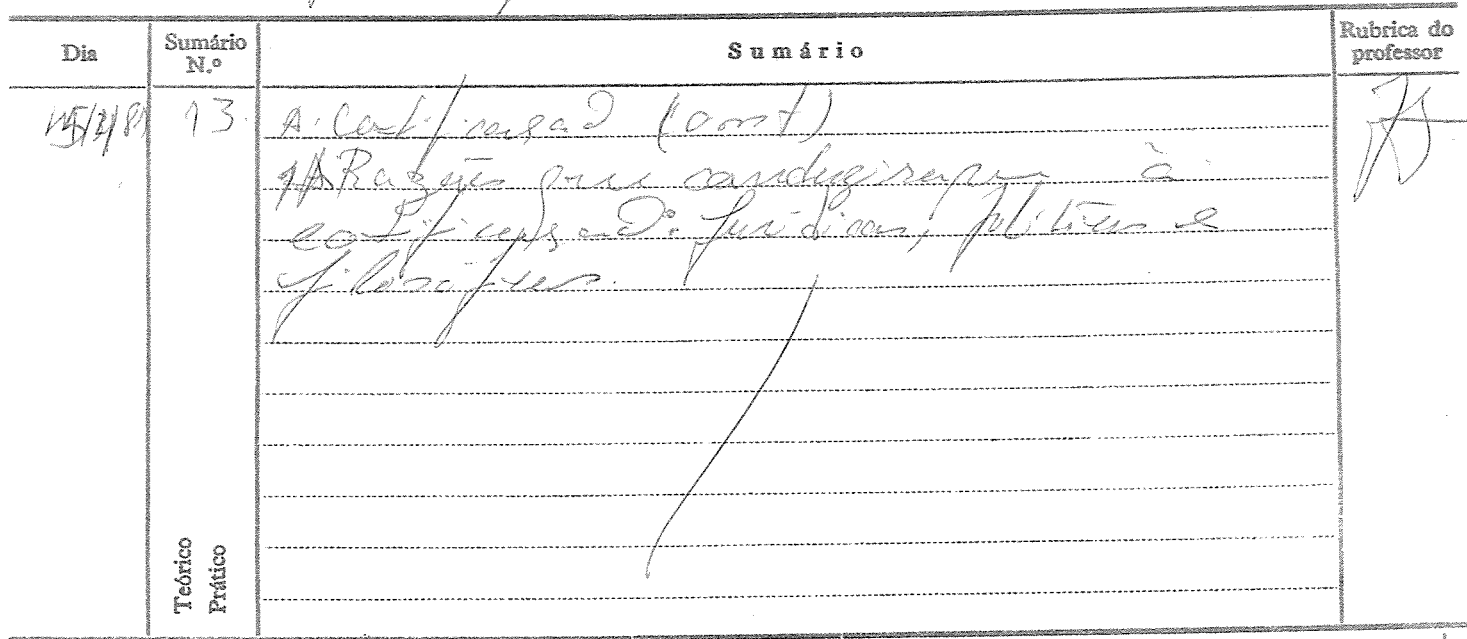 Dia
Sumário N.º
Sumário
Rubrica do professor
13.
A Codificação (Const)
Razões que conduziram à
codificação: jurídicas, políticas e
filosóficas.
Teórico
Prático